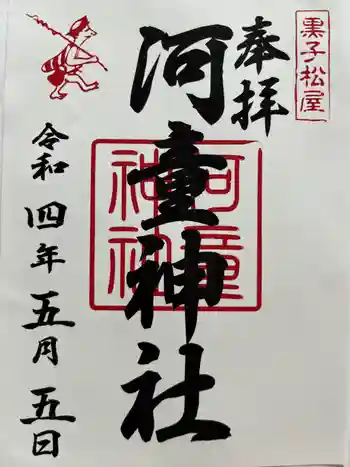 黒子松屋
奉拝
河童神社
河童
神社
令和四年五月五日